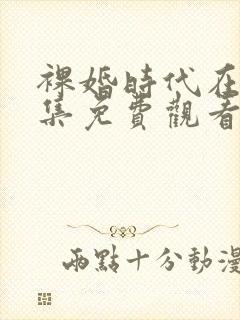 裸婚時代在
集免費觀看
兩點十分動漫